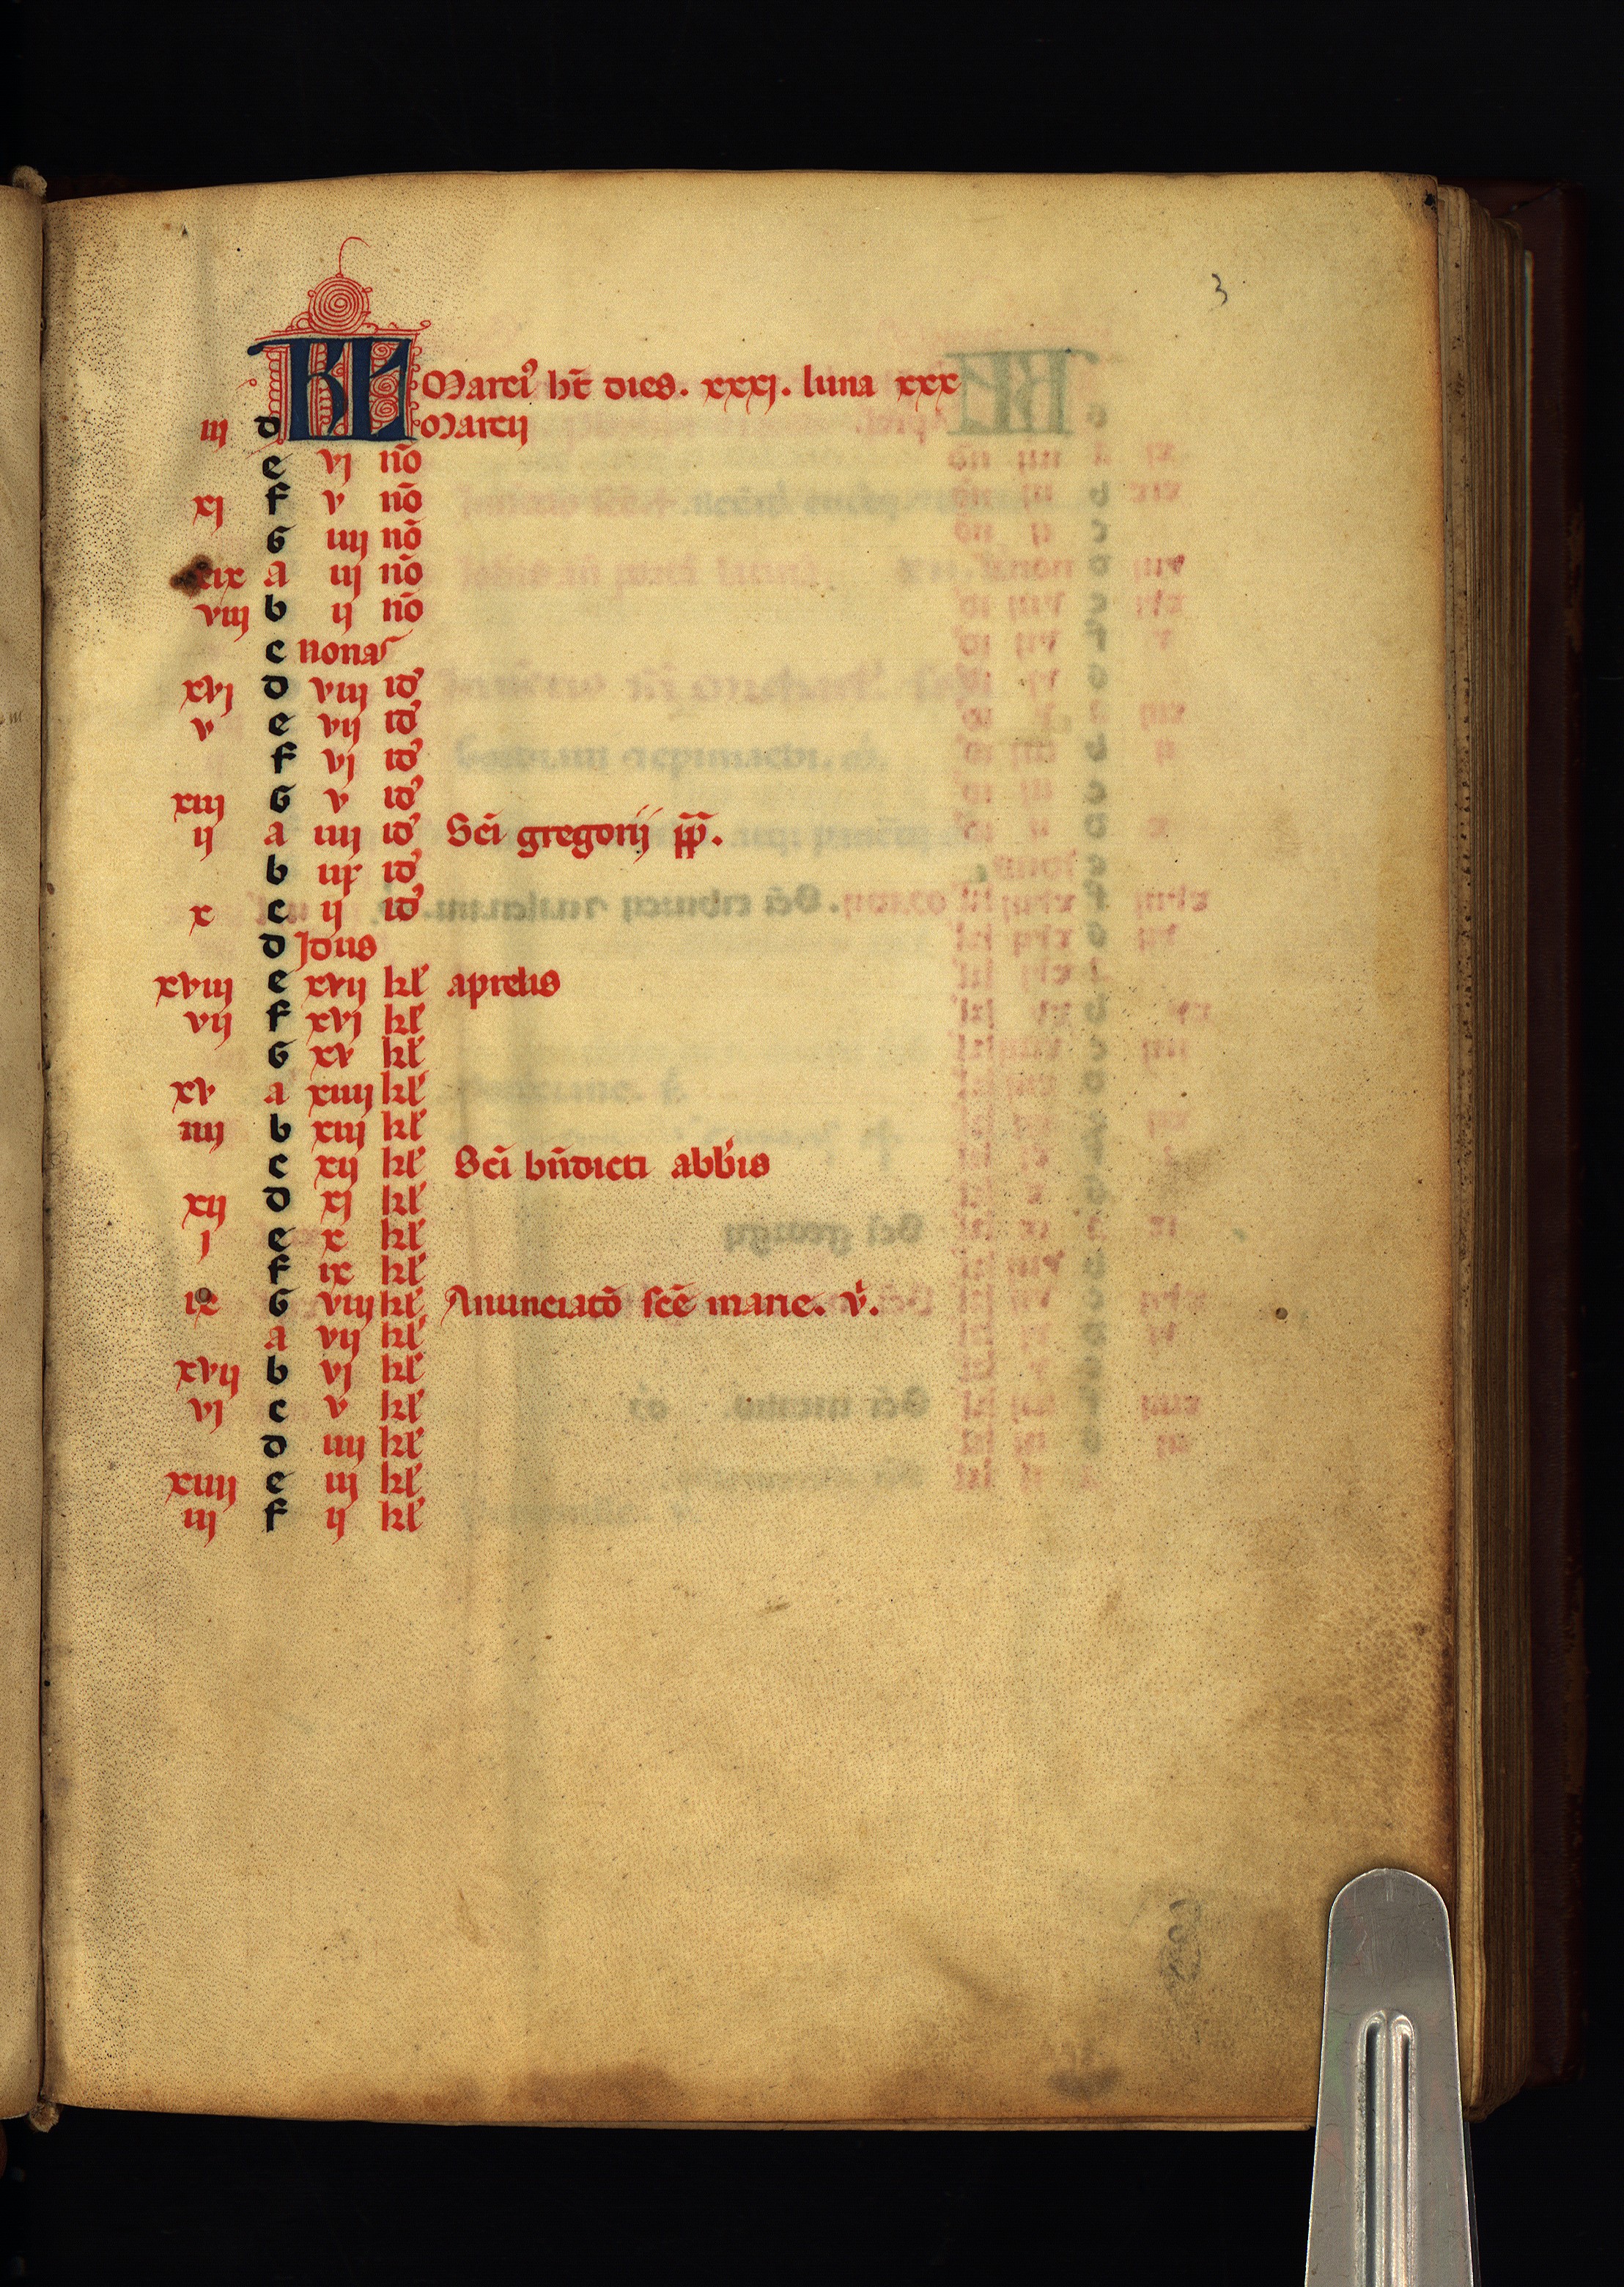 3
KL Marci⁹ ht̄ dies. xxxj. luna xxx
iij d Marcij
e vj nō
xj f v nō
G iiij nō
xix a iij nō
viij b ij nō
c nonas
xvj d viij id⁹
v e vij id⁹
f vj id⁹
xiij G v id⁹
ij a iiij id⁹ Scī gregorij pp̄.
b iij id⁹
x c ij id⁹
d Jdus
xviij e xvij kl̓ aprelis
vij f xvj kl̓
G xv kl̓
xv a xiiij kl̓
iiij b xiij kl̓
c xij kl̓ Scī bn̄dicti abb̓is
xij d xj kl̓
j e x kl̓
f ix kl̓
ix G viij kl̓ Anunciatō scē marie. v̓.
a vij kl̓
xvij b vj kl̓
vj c v kl̓
d iiij kl̓
xiiij e iij kl̓
iij f ij kl̓